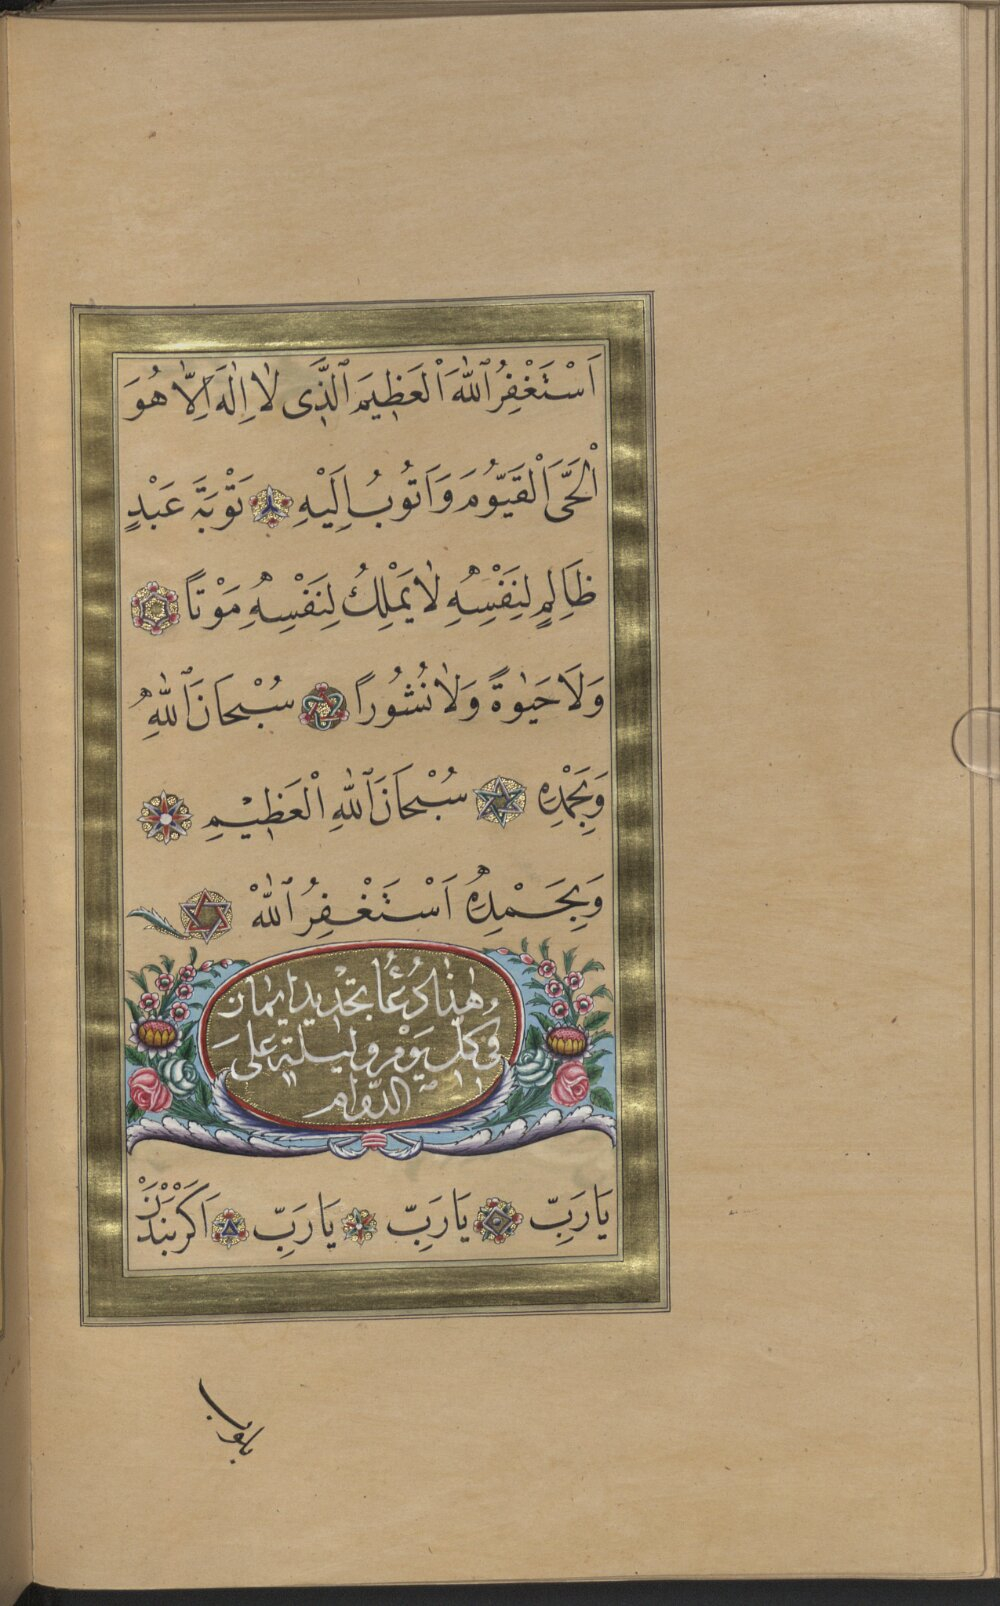 اَسْتَغْفِرُ اللّٰهَ الْعَظِيمَ الَّذَى لَا اِلٰهَ اِلَّا هُوَ
الْحَىَّ الْقَيُّومَ وَاَتُوبُ اِلَيْهِ تَوْبَةَ عَبْدٍ
ظَالِمٍ لِنَفْسِهِ لَا يَمْلِكُ لِنَفْسِهِ مَوْتاً
وَلَا حَيٰوةً وَلَا نُشُوراً سُبْحَانَ اللّٰهِ
وَبِحَمْدِهِ سُبْحَانَ اللّٰهِ الْعَظِيْمِ
وَبِحَمْدِهِ اَسْتَغْفِرُ اللّٰهْ
هٰذَا دُعَا تجْدِيد ايمان
فى كُلِّ يَوْمٍ وليلةٍ عَلىَ
الدَّوَام
يَارَبِّ يَارَبِّ يَارَبِّ اَكَرْ بَنْدَنْ